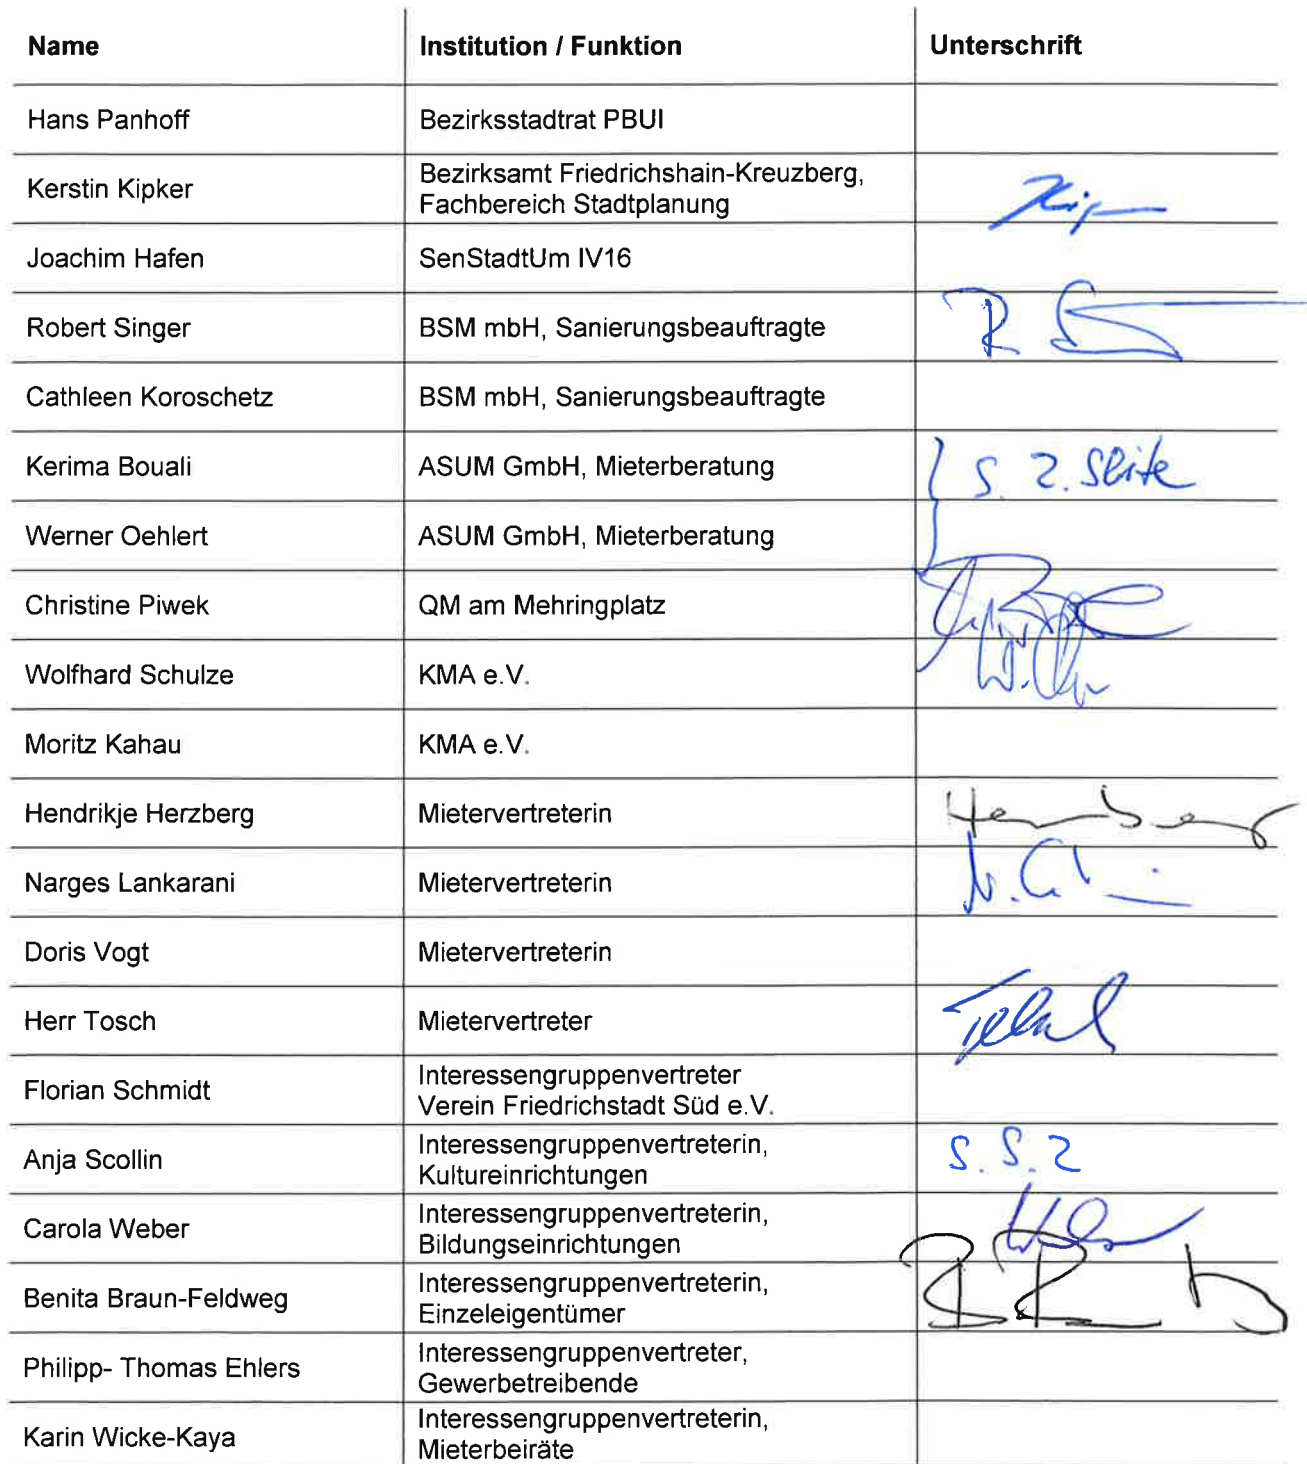 Name Institution / Funktion Unterschrift
Hans Panhoff Bezirksstadtrat PBUI
Kerstin Kipker Bezirksamt Friedrichshain-Kreuzberg,
Fachbereich Stadtplanung
Joachim Hafen SenStadtUm IV16
Robert Singer BSM mbH, Sanierungsbeauftragte
Cathleen Koroschetz BSM mbH, Sanierungsbeauftragte
Kerima Bouali ASUM GmbH, Mieterberatung S. 2. Seite
Werner Oehlert ASUM GmbH, Mieterberatung
Christine Piwek QM am Mehringplatz
Wolfhard Schulze KMA e.V.
Moritz Kahau KMA e.V.
Hendrikje Herzberg Mietervertreterin Herzberg
Narges Lankarani Mietervertreterin
Doris Vogt Mietervertreterin
Herr Tosch Mietervertreter
Florian Schmidt Interessengruppenvertreter
Verein Friedrichstadt Süd e.V.
Anja Scollin Interessengruppenvertreterin, S. S. 2
Kultureinrichtungen
Carola Weber Interessengruppenvertreterin,
Bildungseinrichtungen
Benita Braun-Feldweg Interessengruppenvertreterin,
Einzeleigentümer
Philipp- Thomas Ehlers Interessengruppenvertreter,
Gewerbetreibende
Karin Wicke-Kaya Interessengruppenvertreterin,
Mieterbeiräte